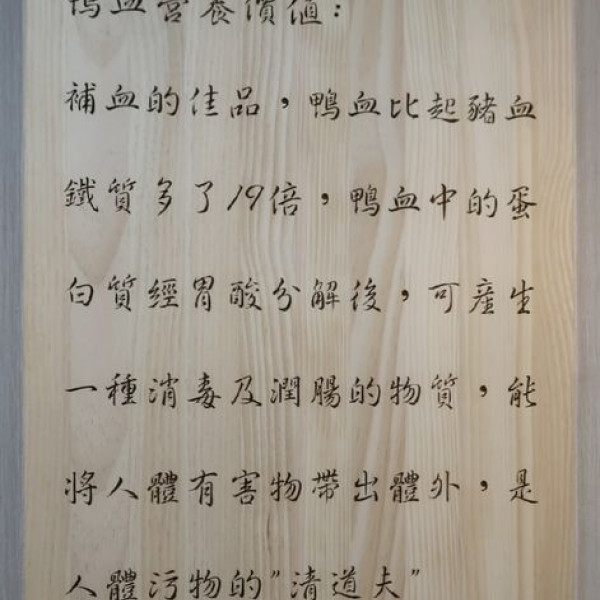 鴨血營養價值：
補血的佳品，鴨血比起豬血
鐵質多了19倍，鴨血中的蛋
白質經胃酸分解後，可產生
一種消毒及潤腸的物質，能
將人體有害物帶出體外，是
人體污物的"清道夫"